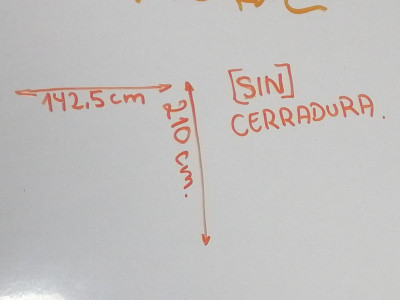 142,5cm
210 cm.
[SIN]
CERRADURA.